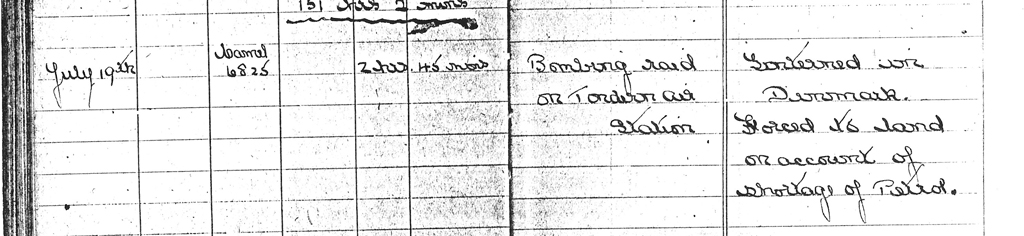 151 hrs 2 mins
July 19th
Camel
6825
2 hrs. 45 mins
Bombing raid
on Tondern air
Station
Interned in
Denmark.
Forced to land
on account of
shortage of Petrol.